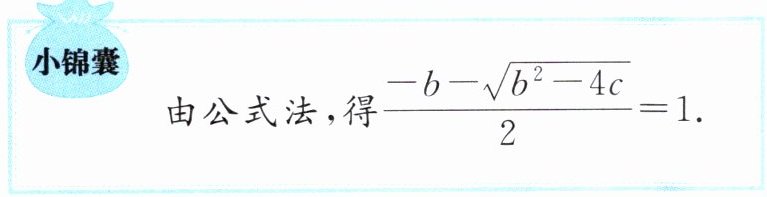 小锦囊
由公式法,得$\frac{-b-\sqrt{b^2-4c}}{2}=1.$